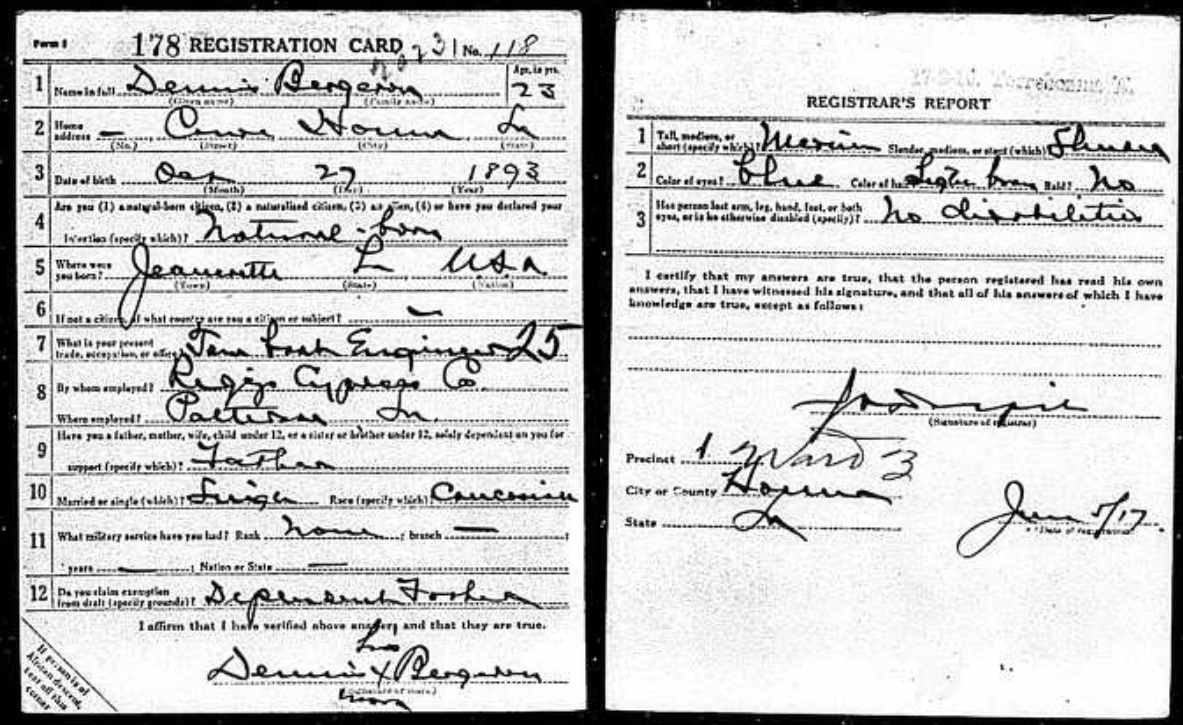 Form 1 178 REGISTRATION CARD No. 118
1 Name in full Dennis Bergeron Age, in yrs. 23
(Given name) (Family name)
2 Home address — Houma La
(No.) (Street) (City) (State)
3 Date of birth 27 1893
(Month) (Day) (Year)
4 Are you (1) a natural-born citizen, (2) a naturalized citizen, (3) an alien, (4) or have you declared your
intention (specify which)? Natural-born
5 Where were you born? Jeanerette L USA
(Town) (State) (Nation)
6 If not a citizen, of what country are you a citizen or subject? —
7 What is your present trade, occupation, or office? boat Engineer 25
8 By whom employed? Cypress Co.
Where employed? Patterson La.
9 Have you a father, mother, wife, child under 12, or a sister or brother under 12, solely dependent on you for
support (specify which)? Father
10 Married or single (which)? Single Race (specify which)? Caucasian
11 What military service have you had? Rank None ; branch — ;
years — ; Nation or State —
12 Do you claim exemption from draft (specify grounds)? Dependent Father
I affirm that I have verified above answers and that they are true.
his
Dennis X Bergeron
(Signature or mark)
mark
If person is of
African descent,
tear off this
corner
17-3-10. Terrebonne
REGISTRAR'S REPORT
1 Tall, medium, or short (specify which)? Medium Slender, medium, or stout (which)? Slender
2 Color of eyes? blue Color of hair? Light brown Bald? No
3 Has person lost arm, leg, hand, foot, or both eyes, or is he otherwise disabled (specify)? No disabilities
I certify that my answers are true, that the person registered has read his own
answers, that I have witnessed his signature, and that all of his answers of which I have
knowledge are true, except as follows:
(Signature of registrar)
Precinct 1 Ward 3
City or County Houma
State La
June 5/17
(Date of registration)